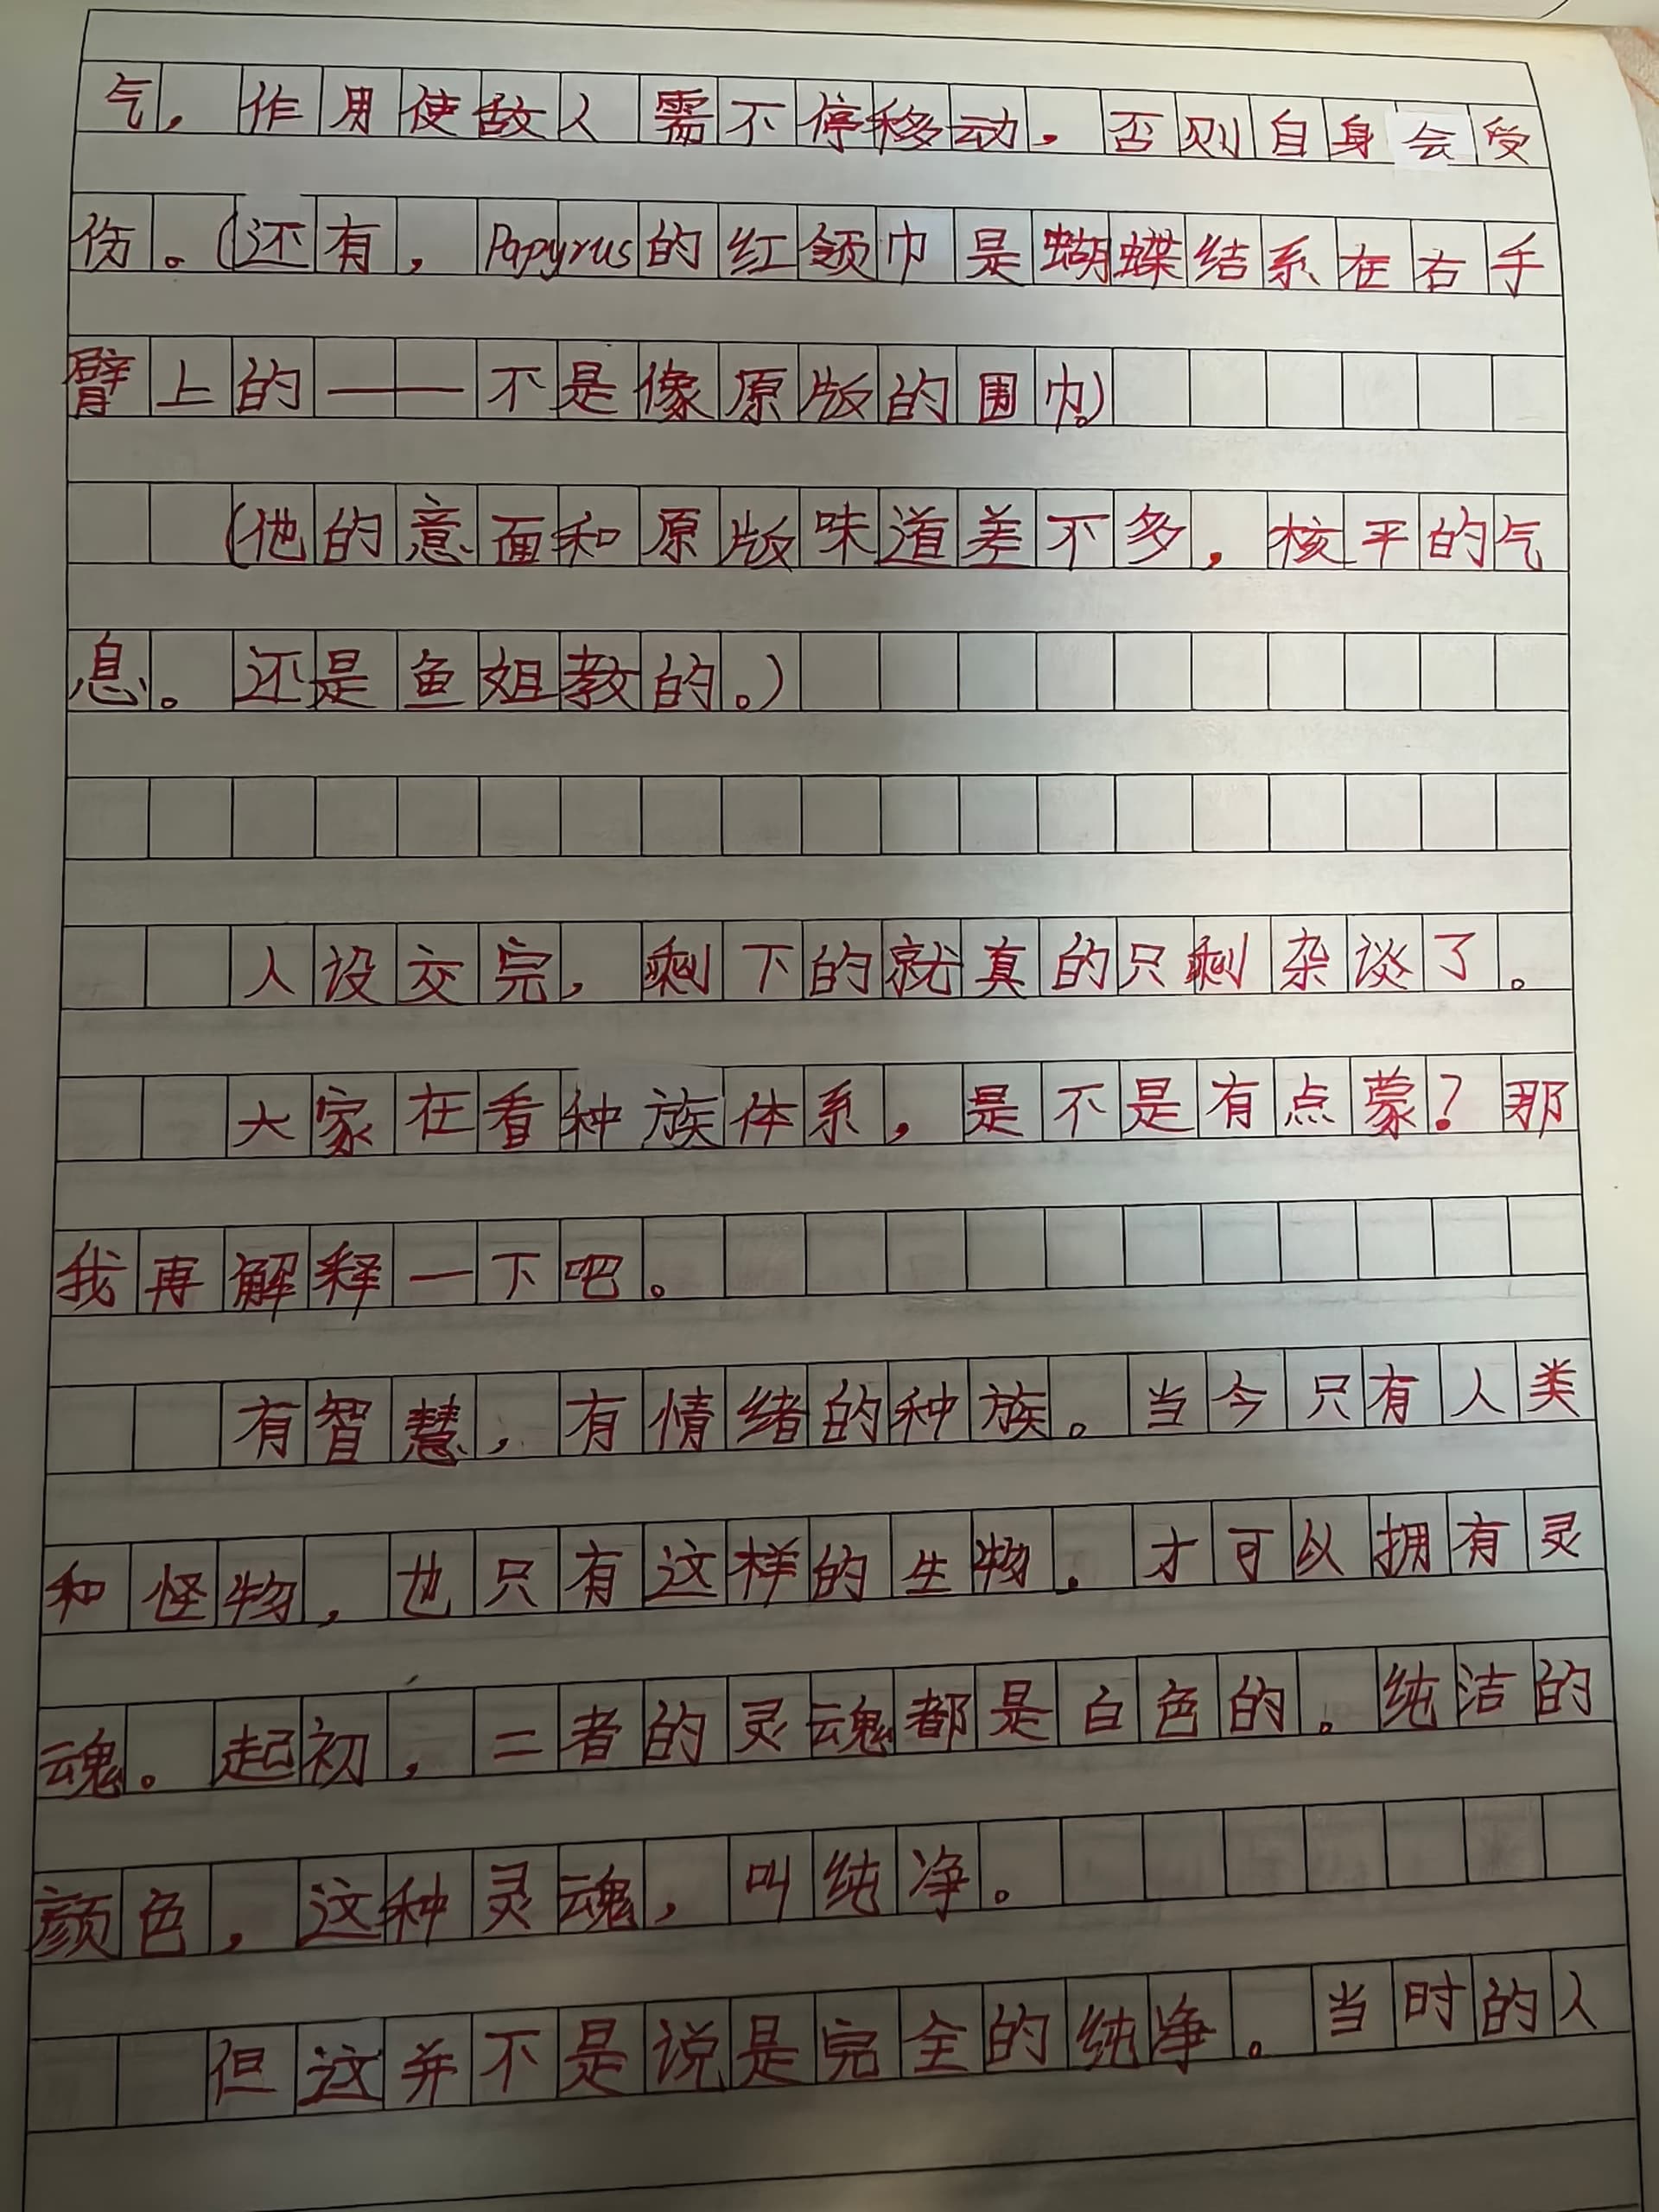 气，作用使敌人需不停移动，否则自身会受
伤。(还有，Papyrus的红领巾是蝴蝶结系在右手
臂上的——不是像原版的围巾。)
(他的意面和原版味道差不多，核平的气
息。还是鱼姐教的。)
人设交完，剩下的就真的只剩杂谈了。
大家在看种族体系，是不是有点蒙？那
我再解释一下吧。
有智慧，有情绪的种族。当今只有人类
和怪物，也只有这样的生物，才可以拥有灵
魂。起初，二者的灵魂都是白色的。纯洁的
颜色，这种灵魂，叫纯净。
但这并不是说是完全的纯净。当时的人